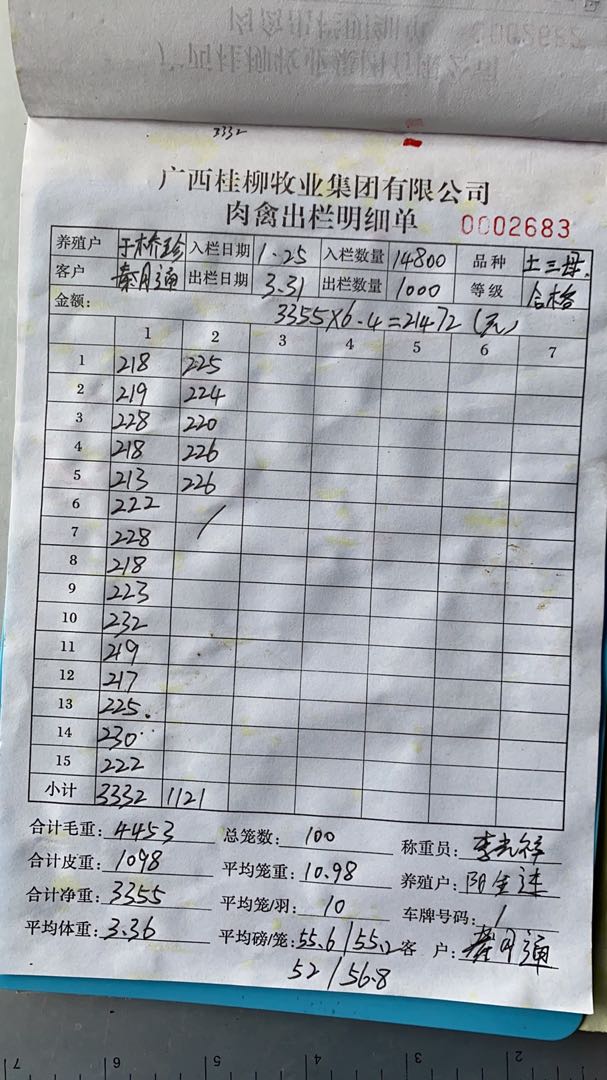 3332
广西桂柳牧业集团有限公司
肉禽出栏明细单 0002683
养殖户 于桥珍 入栏日期 1.25 入栏数量 14800 品种 土三母
客户 秦月通 出栏日期 3.31 出栏数量 1000 等级 合格
金额: 3355×6.4=21472(元)
1 2 3 4 5 6 7
1 218 225
2 219 224
3 228 220
4 218 226
5 213 226
6 222 /
7 228
8 218
9 223
10 232
11 219
12 217
13 225.
14 230
15 222
小计 3332 1121
合计毛重: 4453 总笼数: 100 称重员: 李光祥
合计皮重: 1098 平均笼重: 10.98 养殖户: 阳
合计净重: 3355 平均笼/羽: 10 车牌号码: /
平均体重: 3.36 平均磅/笼: 55.6/55.2 客户: 秦月通
52/56.8
7 6 5 4 3 2